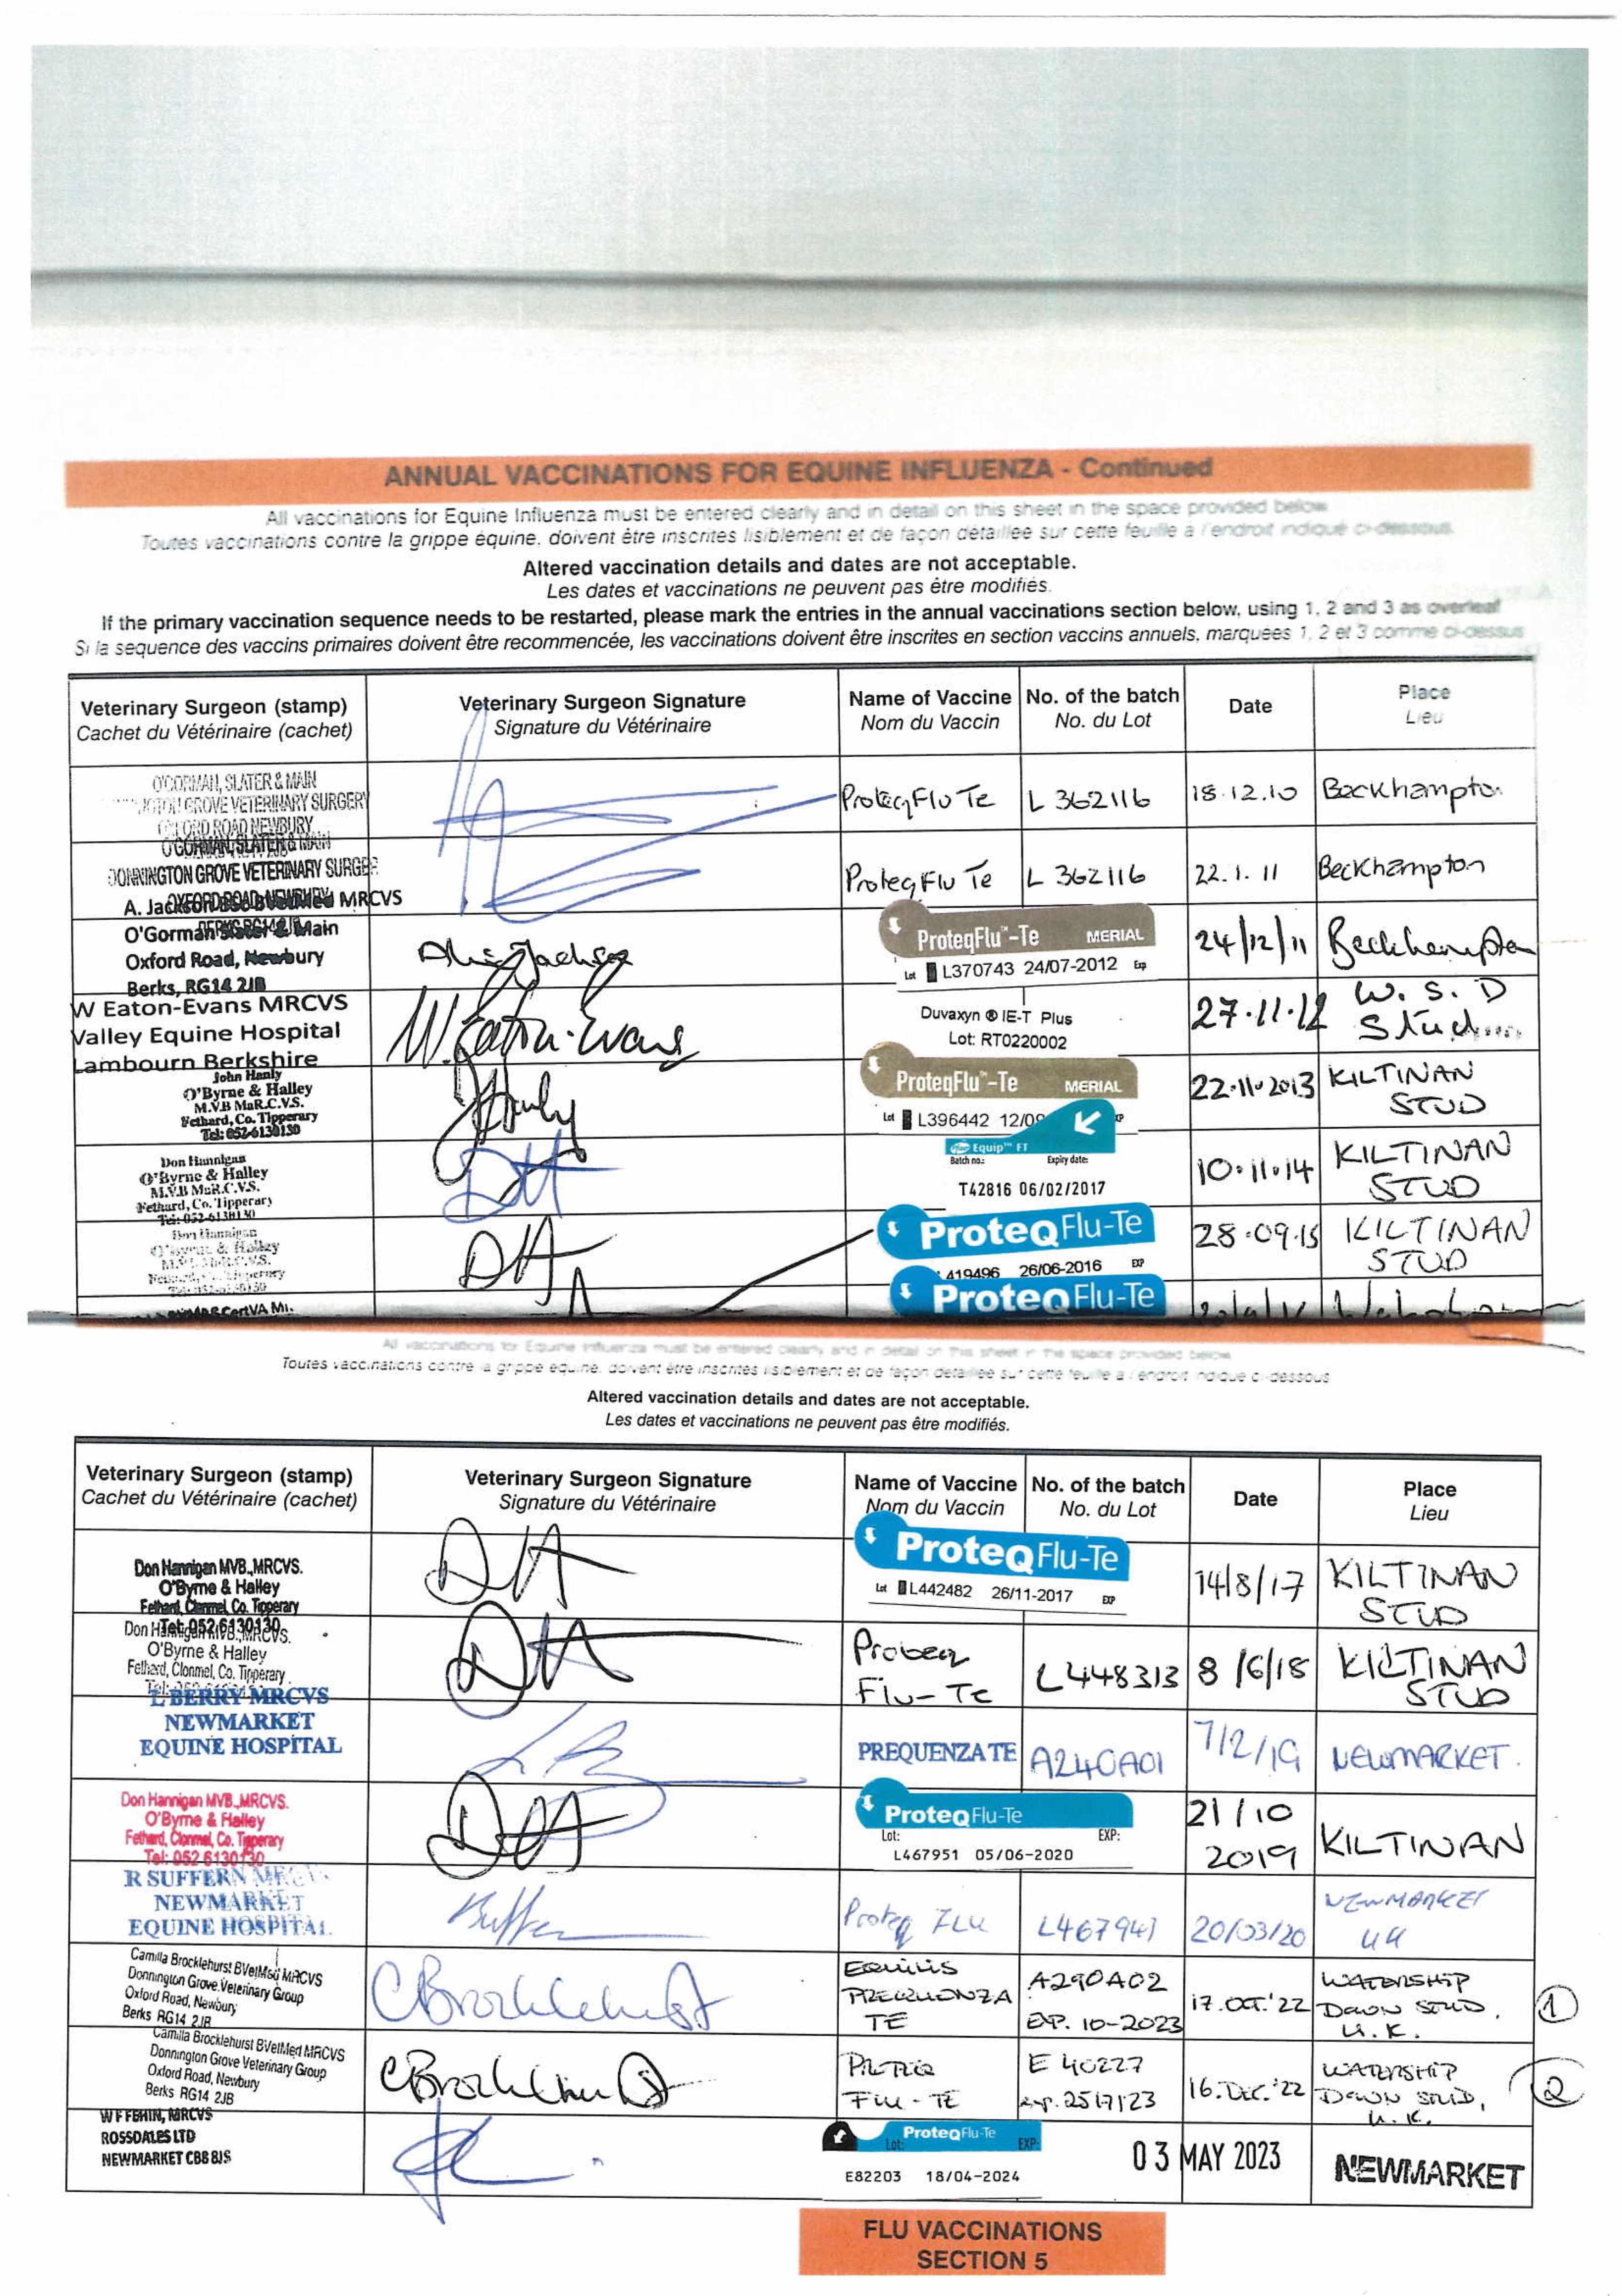 ANNUAL VACCINATIONS FOR EQUINE INFLUENZA - Continued
All vaccinations for Equine Influenza must be entered clearly and in detail on this sheet in the space provided below
Toutes vaccinations contre la grippe équine, doivent être inscrites lisiblement et de façon détaillée sur cette feuille a l'endroit indiqué ci-dessous.
Altered vaccination details and dates are not acceptable.
Les dates et vaccinations ne peuvent pas être modifiés.
If the primary vaccination sequence needs to be restarted, please mark the entries in the annual vaccinations section below, using 1, 2 and 3 as overleaf
Si la sequence des vaccins primaires doivent être recommencée, les vaccinations doivent être inscrites en section vaccins annuels, marquees 1, 2 et 3 comme ci-dessus
Veterinary Surgeon (stamp) Veterinary Surgeon Signature Name of Vaccine No. of the batch Date Place
Cachet du Vétérinaire (cachet) Signature du Vétérinaire Nom du Vaccin No. du Lot Lieu
O'GORMAN, SLATER & MAIN
GROVE VETERINARY SURGERY
ROAD NEWBURY
ProteqFlu Te L 362116 18.12.10 Beckhampton
O'GORMAN, SLATER & MAIN
DONNINGTON GROVE VETERINARY SURGE
ProteqFlu Te L 362116 22.1.11 Beckhampton
A. Jackson MRCVS
O'Gorman Main
Oxford Road, Newbury
Berks, RG14 2JB
ProteqFlu™-Te MERIAL
Lot L370743 24/07-2012 Exp
24/12/11 Beckhampton
W Eaton-Evans MRCVS
Valley Equine Hospital
Lambourn Berkshire
W. Eaton-Evans
Duvaxyn ® IE-T Plus
Lot: RT0220002
27.11.12 W. S. D
Stud
John Hanly
O'Byrne & Halley
M.V.B MaR.C.V.S.
Fethard, Co. Tipperary
Tel: 052-6130130
ProteqFlu™-Te MERIAL
Lot L396442 12/09
22.11.2013 KILTINAN
STUD
Don Hannigan
O'Byrne & Halley
M.V.B MaR.C.V.S.
Fethard, Co. Tipperary
Tel: 052-6130130
Equip™ FT
Batch no.: Expiry date:
T42816 06/02/2017
10.11.14 KILTINAN
STUD
Don Hannigan
O'Byrne & Halley
DH
ProteqFlu-Te
419496 26/06-2016 EXP
28.09.15 KILTINAN
STUD
CertVA
ProteqFlu-Te
All vaccinations for Equine Influenza must be entered clearly and in detail on this sheet in the space provided below
Toutes vaccinations contre la grippe équine, doivent être inscrites lisiblement et de façon détaillée sur cette feuille a l'endroit indique ci-dessous
Altered vaccination details and dates are not acceptable.
Les dates et vaccinations ne peuvent pas être modifiés.
Veterinary Surgeon (stamp) Veterinary Surgeon Signature Name of Vaccine No. of the batch Date Place
Cachet du Vétérinaire (cachet) Signature du Vétérinaire Nom du Vaccin No. du Lot Lieu
Don Hannigan MVB.,MRCVS.
O'Byrne & Halley
Fethard, Clonmel, Co. Tipperary
Tel: 052 6130130
DH
ProteqFlu-Te
Lot L442482 26/11-2017 EXP
14/8/17 KILTINAN
STUD
O'Byrne & Halley
Fethard, Clonmel, Co. Tipperary
DH
Proteq
Flu-Te
L448313 8/6/18 KILTINAN
STUD
L BERRY MRCVS
NEWMARKET
EQUINE HOSPITAL
LB
PREQUENZA TE A240A01 7/2/19 NEWMARKET.
Don Hannigan MVB.,MRCVS.
O'Byrne & Halley
Fethard, Clonmel, Co. Tipperary
Tel: 052 6130130
DH
ProteqFlu-Te
Lot: EXP:
L467951 05/06-2020
21/10
2019
KILTINAN
R SUFFERN MRCVS
NEWMARKET
EQUINE HOSPITAL
Proteq FLU L467941 20/03/20 NEWMARKET
UK
Camilla Brocklehurst BVetMed MRCVS
Donnington Grove Veterinary Group
Oxford Road, Newbury
Berks RG14 2JB
CBrocklehurst
EQUILIS
PREQUENZA
TE
A290A02
EXP. 10-2023
17.OCT.'22
WATERSHIP
DOWN STUD,
U.K.
1
Camilla Brocklehurst BVetMed MRCVS
Donnington Grove Veterinary Group
Oxford Road, Newbury
Berks RG14 2JB
CBrocklehurst
PROTEQ
FLU-TE
E 40227
exp. 25/7/23
16.DEC.'22
WATERSHIP
DOWN STUD,
U.K.
2
W F FEHIN, MRCVS
ROSSDALES LTD
NEWMARKET CB8 8JS
ProteqFlu-Te
Lot: EXP:
E82203 18/04-2024
03 MAY 2023 NEWMARKET
FLU VACCINATIONS
SECTION 5